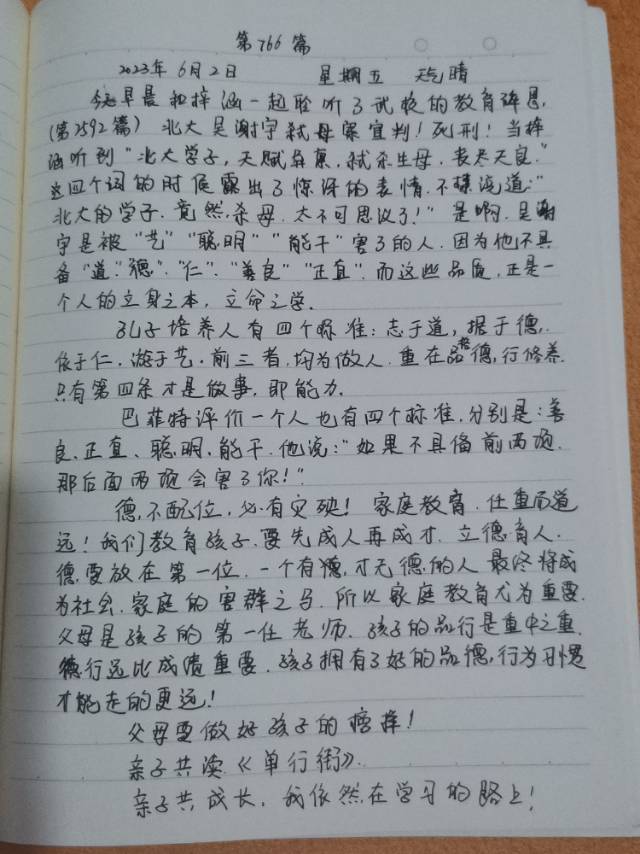 第766篇
2023年6月2日 星期五 天气晴
今天早晨和梓涵一起聆听了武校的教育碎思
(第2592篇) 北大吴谢宇弑母案宣判!死刑!当梓
涵听到"北大学子,天赋异禀,弑杀生母,丧尽天良."
这四个词的时候露出了惊讶的表情.不禁说道:"
北大的学子.竟然.杀母.太不可思议了!"是啊.吴谢
宇是被"艺""聪明""能干"害了的人.因为他不具
备"道"."德"."仁"."善良""正直".而这些品质,正是一
个人的立身之本,立命之学.
孔子培养人有四个标准:志于道,据于德,
依于仁.游于艺.前三者,均为做人.重在品德,行修养.
只有第四条才是做事,即能力.
巴菲特评价一个人也有四个标准.分别是:善
良.正直、聪明.能干.他说:"如果不具备前两项.
那后面两项会害了你!"
德,不配位,必有灾殃!家庭教育.任重而道
远!我们教育孩子.要先成人再成才.立德育人.
德要放在第一位.一个有才无德的人最终将成
为社会.家庭的害群之马.所以家庭教育尤为重要.
父母是孩子的第一任老师.孩子的品行是重中之重.
德行远比成绩重要.孩子拥有了好的品德,行为习惯
才能走的更远!
父母要做好孩子的榜样!
亲子共读《单行街》.
亲子共成长.我依然在学习的路上!